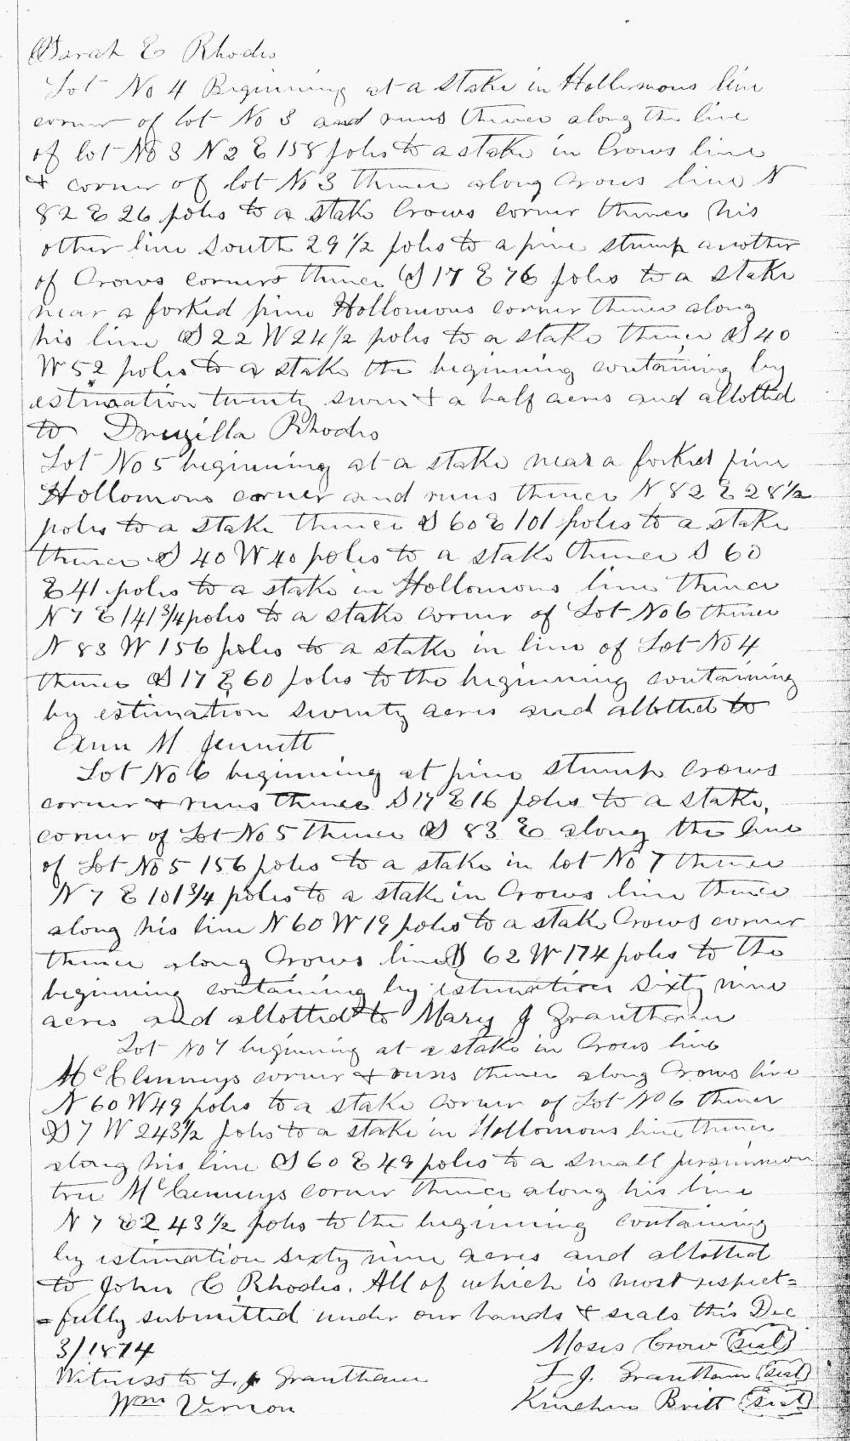 Sarah E Rhodes
Lot No 4 Beginning at a stake in Hollomons line
corner of lot No 3 and runs thence along the line
of lot No 3 N 2 E 158 poles to a stake in Crows line
& corner of lot No 3 thence along Crows line N
82 E 26 poles to a stake Crows corner thence his
other line South 29 1/2 poles to a pine stump another
of Crows corners thence S 17 E 76 poles to a stake
near a forked pine Hollomons corner thence along
his line S 22 W 24 1/2 poles to a stake thence S 40
W 52 poles to a stake the beginning containing by
estimation twenty seven & a half acres and allotted
to Druzilla Rhodes
Lot No 5 beginning at a stake near a forked pine
Hollomons corner and runs thence N 82 E 28 1/2
poles to a stake thence S 60 E 101 poles to a stake
thence S 40 W 40 poles to a stake thence S 60
E 41 poles to a stake in Hollomons line thence
N 7 E 141 3/4 poles to a stake corner of Lot No 6 thence
N 83 W 156 poles to a stake in line of Lot No 4
thence S 17 E 60 poles to the beginning containing
by estimation seventy acres and allotted to
Ann M Jennett
Lot No 6 beginning at pine stump Crows
corner & runs thence S 17 E 16 poles to a stake,
corner of Lot No 5 thence S 83 E along the line
of Lot No 5 156 poles to a stake in lot No 7 thence
N 7 E 101 3/4 poles to a stake in Crows line thence
along his line N 60 W 19 poles to a stake Crows corner
thence along Crows line S 62 W 174 poles to the
beginning containing by estimation sixty nine
acres and allotted to Mary J Grantham
Lot No 7 beginning at a stake in Crows line
McClennys corner & runs thence along Crows line
N 60 W 49 poles to a stake corner of Lot No 6 thence
S 7 W 243 1/2 poles to a stake in Hollomons line thence
along his line S 60 E 49 poles to a small persimmon
tree McClennys corner thence along his line
N 7 E 243 1/2 poles to the beginning containing
by estimation sixty nine acres and allotted
to John C Rhodes. All of which is most respect=
=fully submitted under our hands & seals this Dec
3/1874 Moses Crow (seal)
Witness to L. J Grantham L J. Grantham (seal)
Wm Vernon Britt (seal)